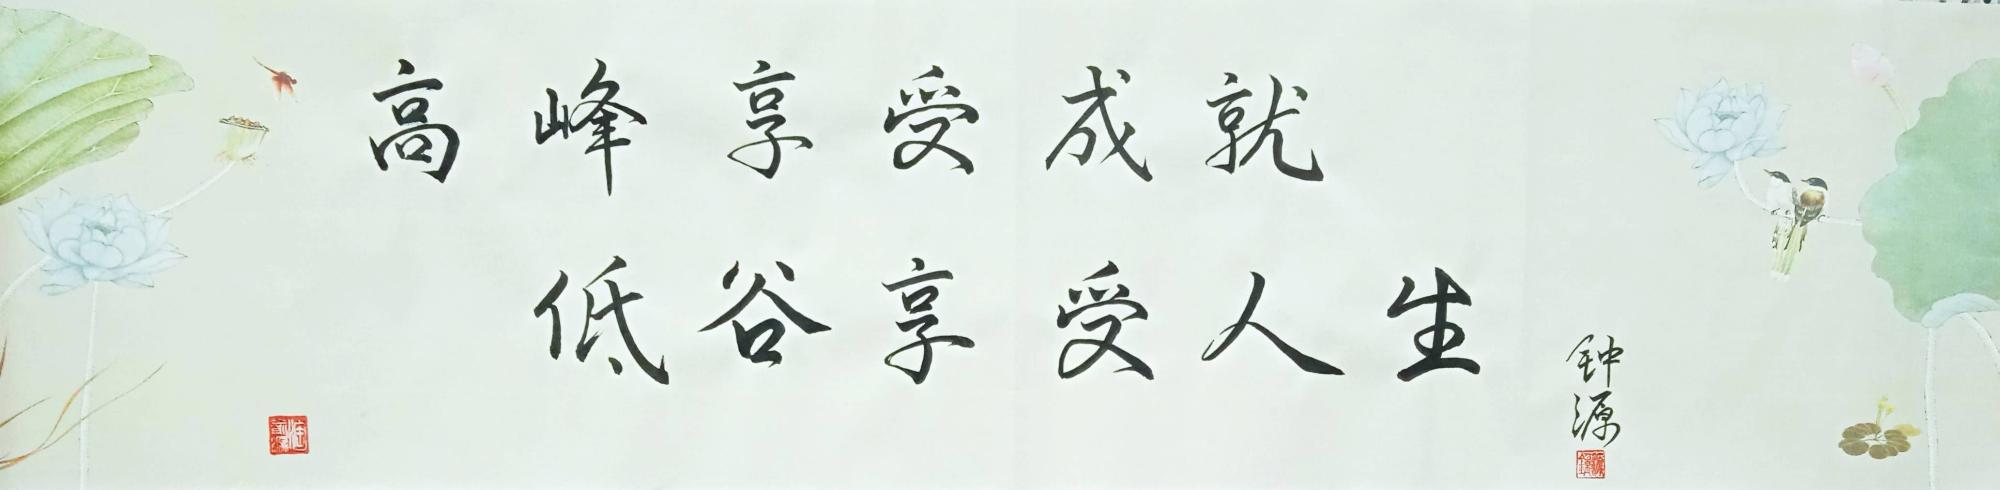 高峰享受成就
低谷享受人生
钟源